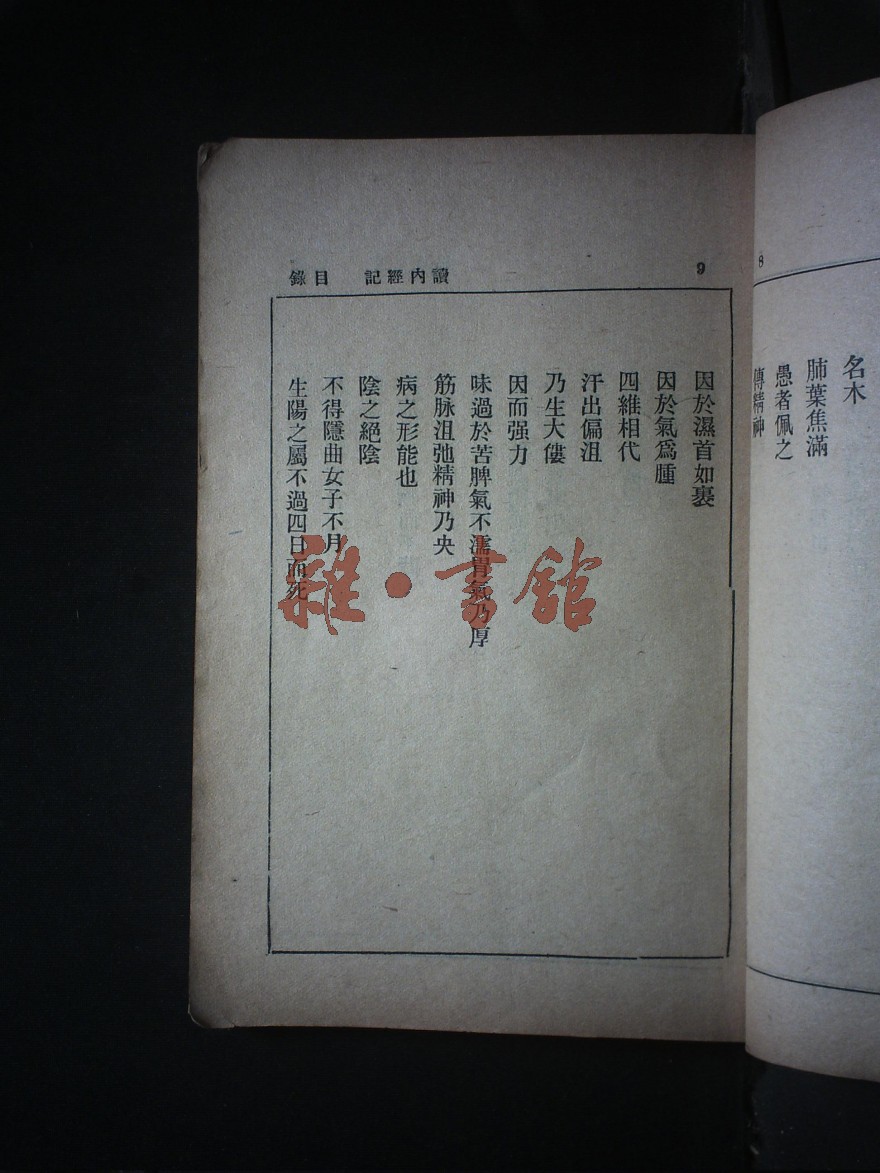 8
名木
肺葉焦滿
愚者佩之
傳精神
讀內經記 目錄 9
因於濕首如裹
因於氣爲腫
四維相代
汗出偏沮
乃生大僂
因而强力
味過於苦脾氣不濡胃氣乃厚
筋脉沮弛精神乃央
病之形能也
陰之絕陰
不得隱曲女子不月
生陽之屬不過四日而死
雜·書館